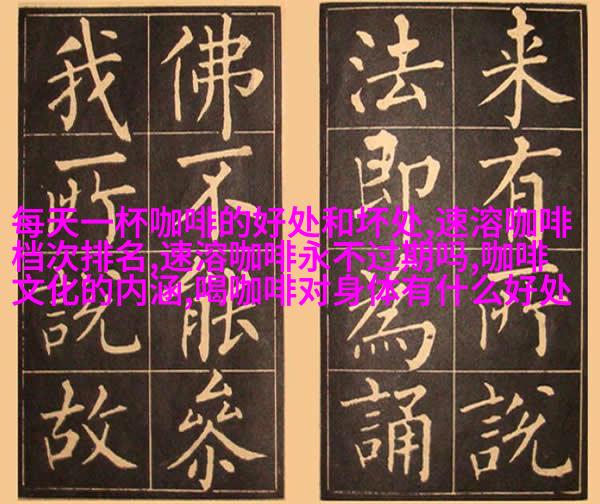 来有所說
法即為誦
佛不能叅
我所說故
每天一杯咖啡的好处和坏处,速溶咖啡
档次排名,速溶咖啡永不过期吗,咖啡
文化的内涵,喝咖啡对身体有什么好处